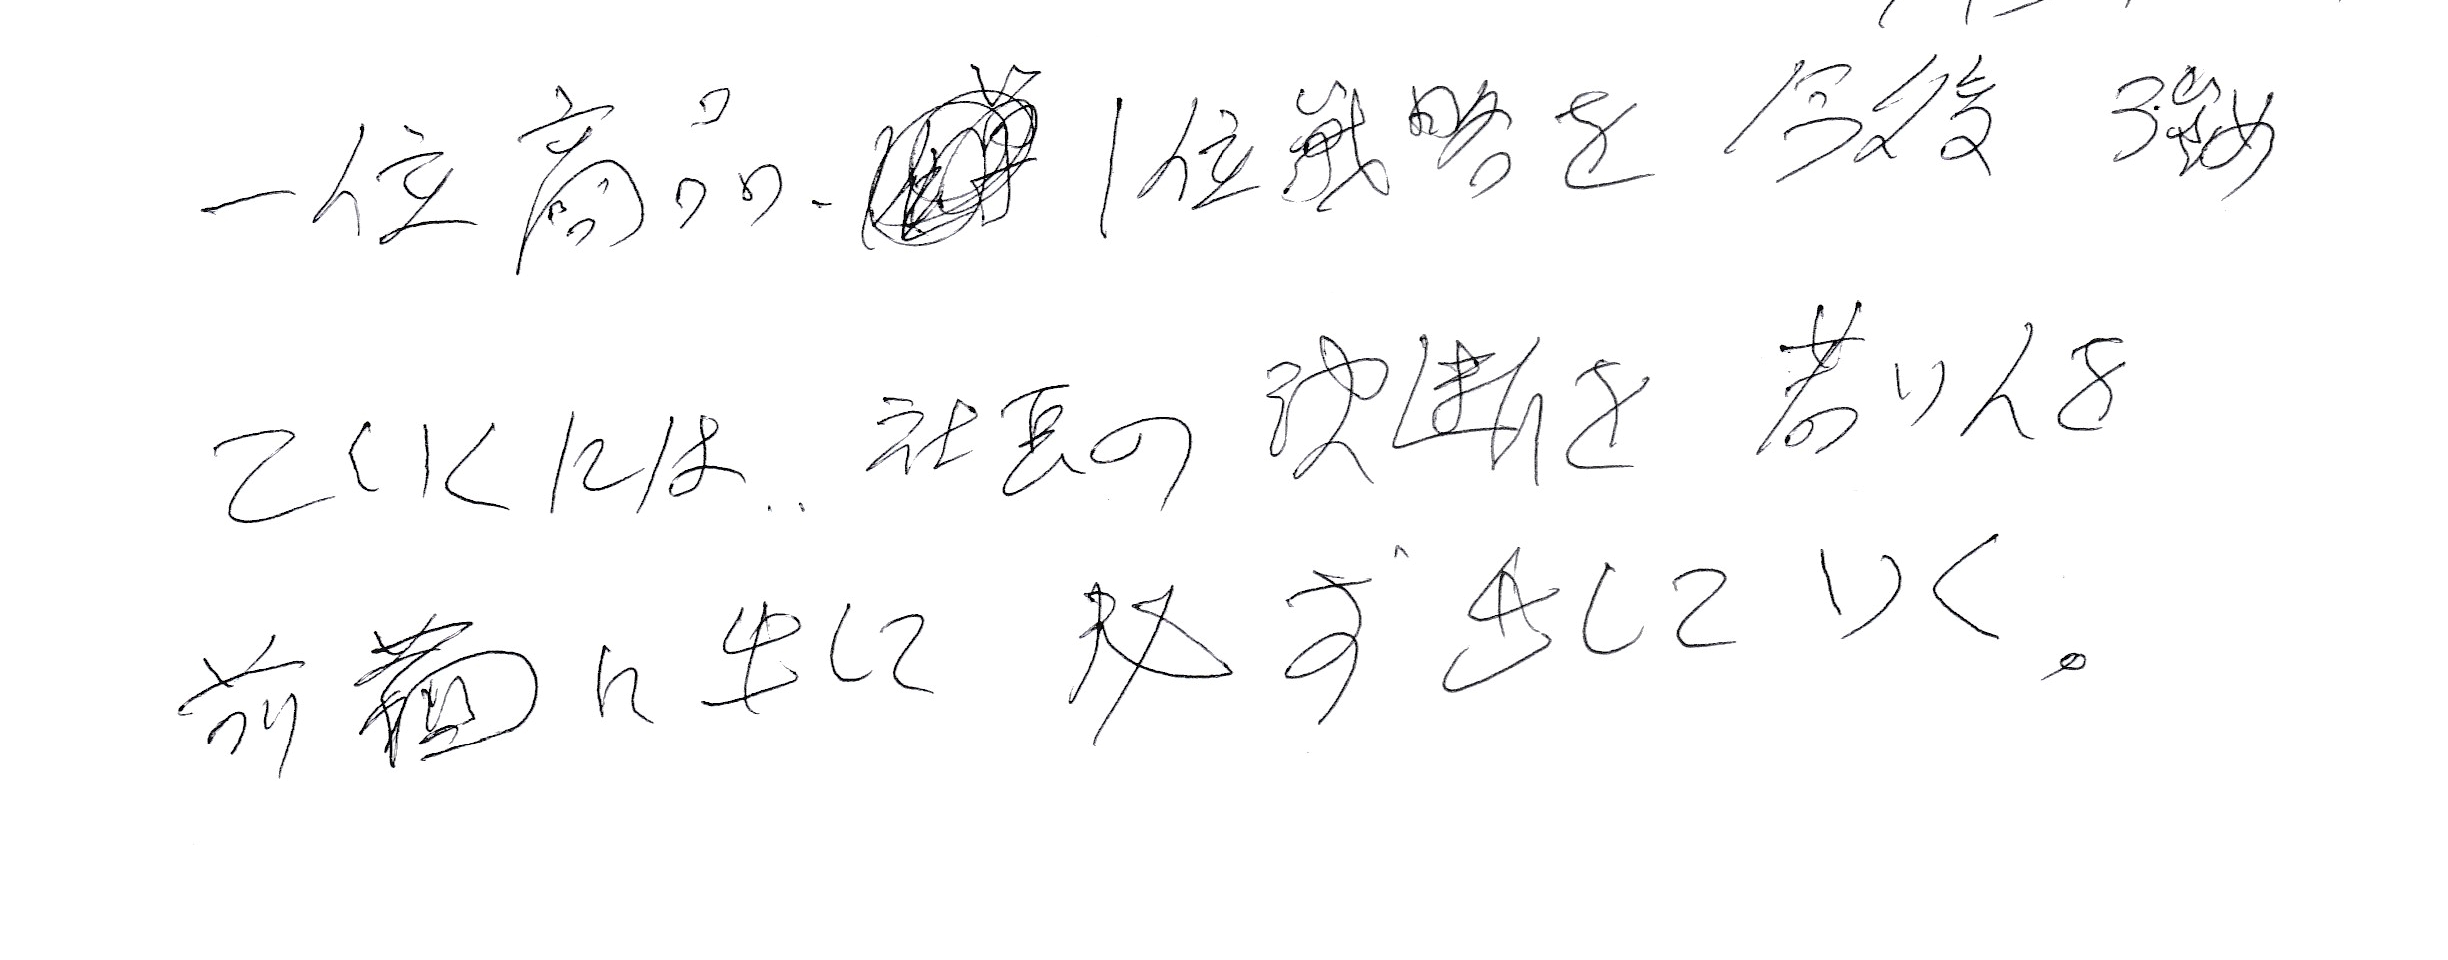 一位商品、1位戦略を今後強め
てくくには、社長の決断を若い人を
前面に出して 必ず出していく。